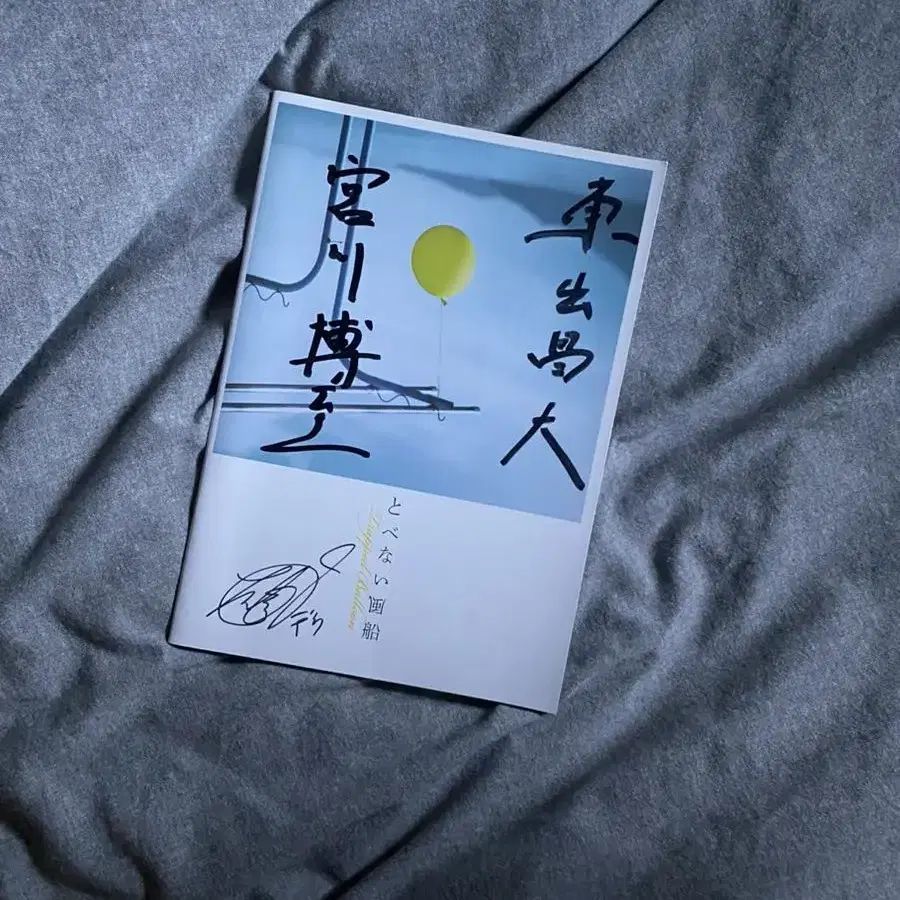 東出昌大
宮川博至
とべない風船
Trapped Balloon
デク